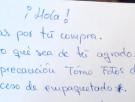 ¡Hola!
as por tú compra.
o qué sea de tú agrado.
precaución Tomo Fotos d
ceso de empaquetado *.